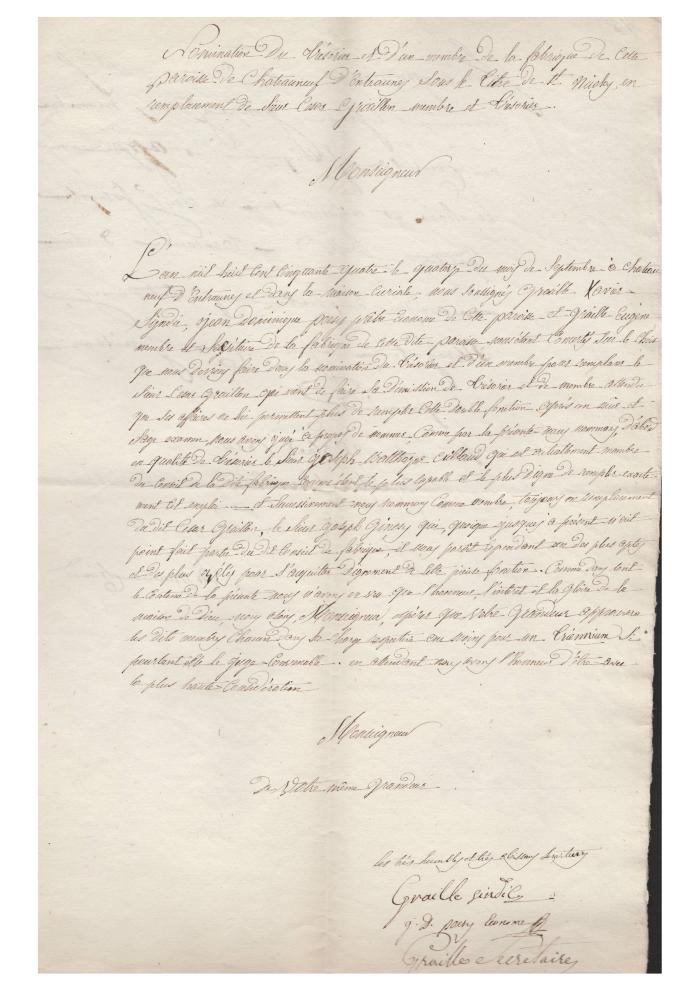 Nomination du trésorier et d'un membre de la fabrique de cette
paroisse de Chateauneuf d'Entraunes sous le titre de St Nicolas, en
remplacement de Sieur Cesar Graillon membre et trésorier.
Monseigneur
L'an mil huit cent cinquante quatre le quatorze du mois de Septembre à Chateau
neuf d'Entraunes et dans la maison curiale, nous soussignés Graille Xavier
Syndic, Jean Dominique prêtre économe de cette paroisse et Graille Eugène
membre et Secrétaire de la fabrique de cette dite paroisse sur le choix
que nous devions faire dans la nomination du trésorier et d'un membre pour remplacer le
Sieur Cesar Graillon qui vient de faire sa démission de trésorier et de membre attendu
que ses affaires ne lui permettent plus de remplir cette double fonction, après un mûr et
sage examen nous avons jugé à propos de nommer, comme par la présente nous nommons, d'abord
en qualité de trésorier le Sieur Joseph Balthazar qui est actuellement membre
du Conseil de la dite fabrique comme étant le plus capable et le plus digne de remplir exacte
ment cet emploi et successivement nous nommons comme membre, toujours en remplacement
du dit Cesar Graillon, le Sieur Joseph Ginesy qui, quoique jusques à présent n'ait
point fait partie du dit Conseil de fabrique, il nous paroit cependant un des plus aptes
et des plus zélés pour s'acquitter dignement de cette fonction. Comme dans tout
le contenu de la présente nous n'avons en vue que l'honneur, l'intérêt et la gloire de la
maison de Dieu, nous osons, Monseigneur, espérer que Votre Grandeur approuvera
les dits membres chacun dans sa charge respective au moins pour un triennium si
pourtant elle le juge convenable. en attendant nous avons l'honneur d'être avec
la plus haute considération
Monseigneur
De Votre même Grandeur
les très humbles et très obéissants serviteurs
Graille sindic
J. D. économe
Graille Secretaire